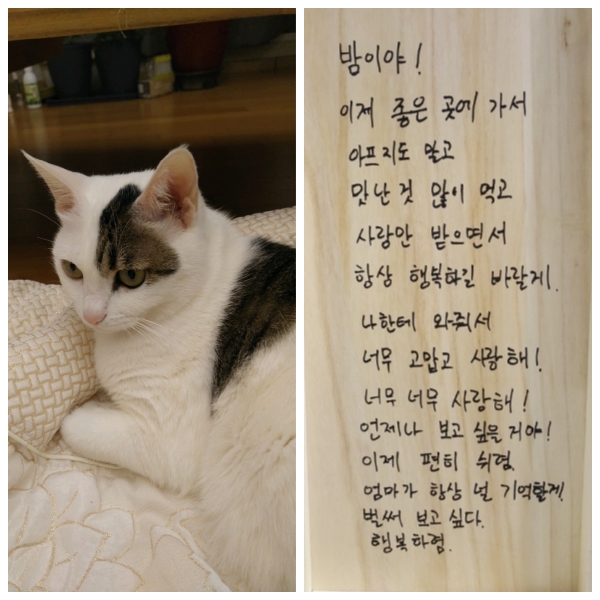 밤이야!
이제 좋은 곳에 가서
아프지도 말고
맛난것 많이 먹고
사랑만 받으면서
항상 행복하길 바랄게.
나한테 와줘서
너무 고맙고 사랑해!
너무 너무 사랑해!
언제나 보고 싶을거야!
이제 편히 쉬렴.
엄마가 항상 널 기억할게.
벌써 보고 싶다.
행복하렴.